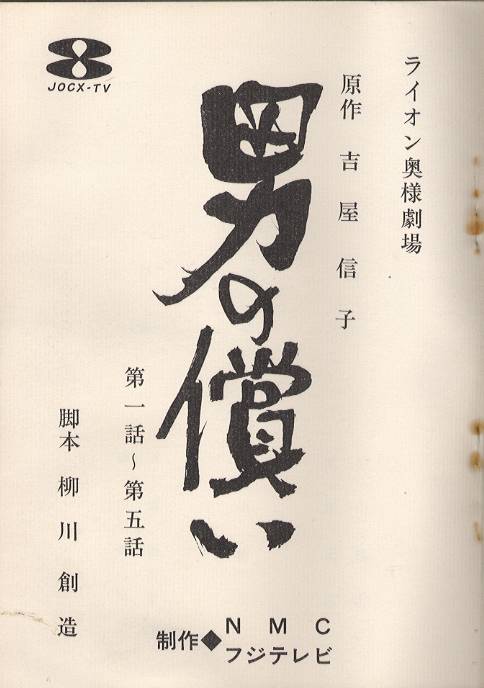 ライオン奥様劇場
原作 吉屋信子
男の償い
第一話～第五話
脚本 柳川創造
制作◆NMC
フジテレビ
JOCX-TV